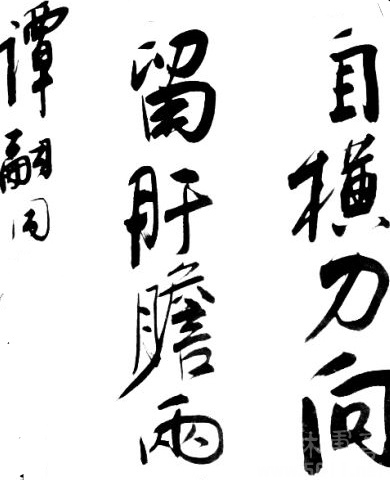 自橫刀向
留肝膽兩
譚嗣同